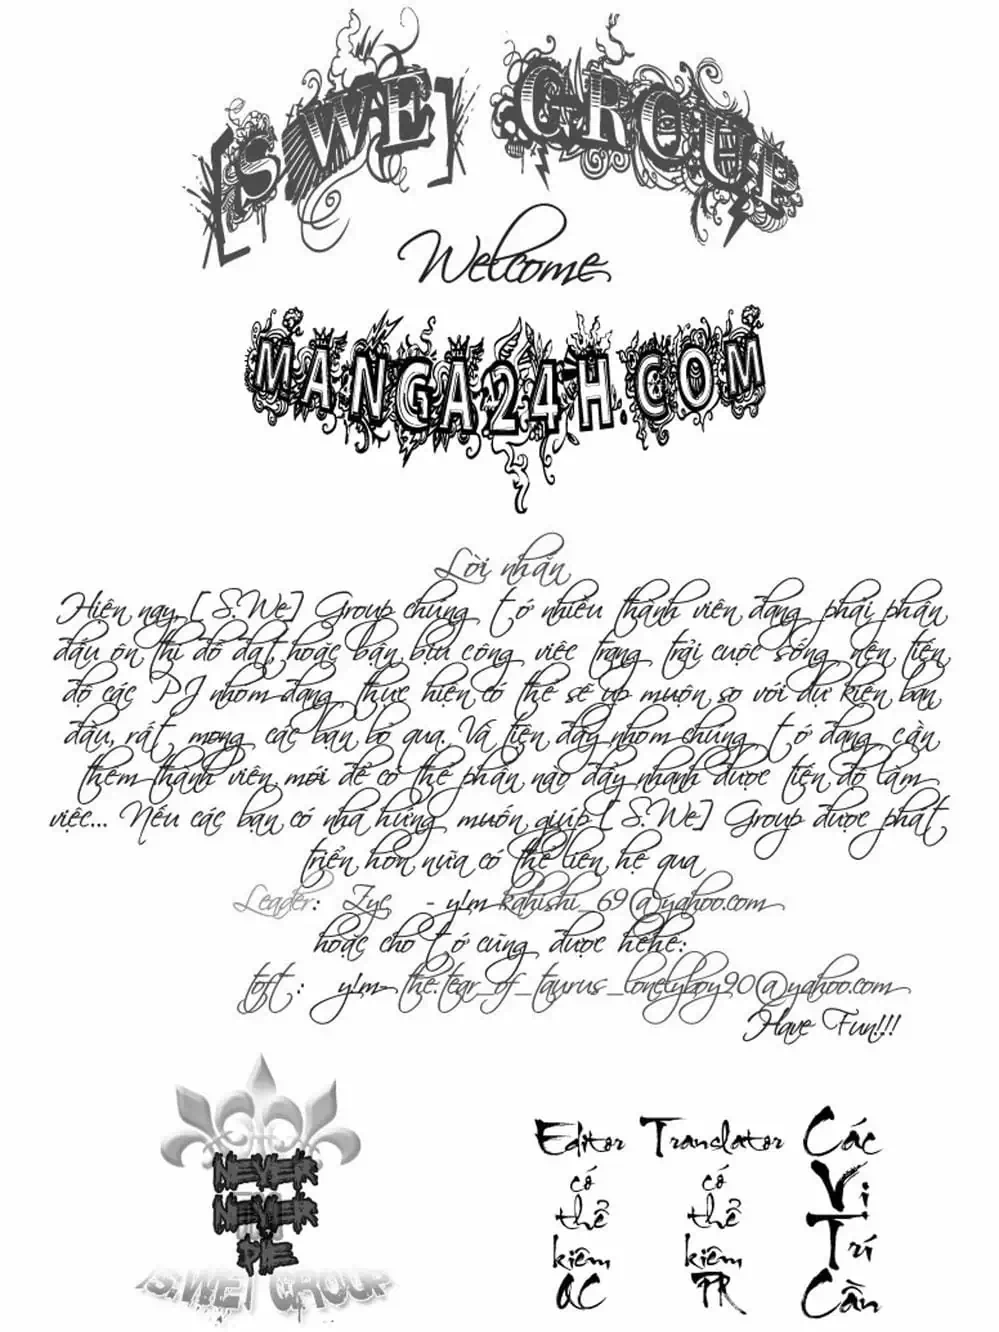 [S.WE] GROUP
Welcome
MANGA24H.COM
Lời nhắn
Hiện nay, [S.We] Group chúng tớ nhiều thành viên đang phải phấn
đấu ôn thi đỗ đạt, hoặc bận bịu công việc trang trải cuộc sống nên tiến
độ các PJ nhóm đang thực hiện có thể sẽ up muộn so với dự kiến ban
đầu, rất mong các bạn bỏ qua. Và tiện đây, nhóm chúng tớ đang cần
thêm thành viên mới để có thể phần nào đẩy nhanh được tiến độ làm
việc... Nếu các bạn có nhã hứng muốn giúp [S.We] Group được phát
triển hơn nữa có thể liên hệ qua
Leader: Zyc - y!m kahishi_69@yahoo.com
hoặc cho tớ cũng được hehe:
toft : y!m- the.tear_of_taurus_lonelyboy90@yahoo.com
Have Fun!!!
NEVER
NEVER
DIE
[S.WE] GROUP
Các
Vị
Trí
Cần
Translator
có
thể
kiêm
PR
Editor
có
thể
kiêm
QC